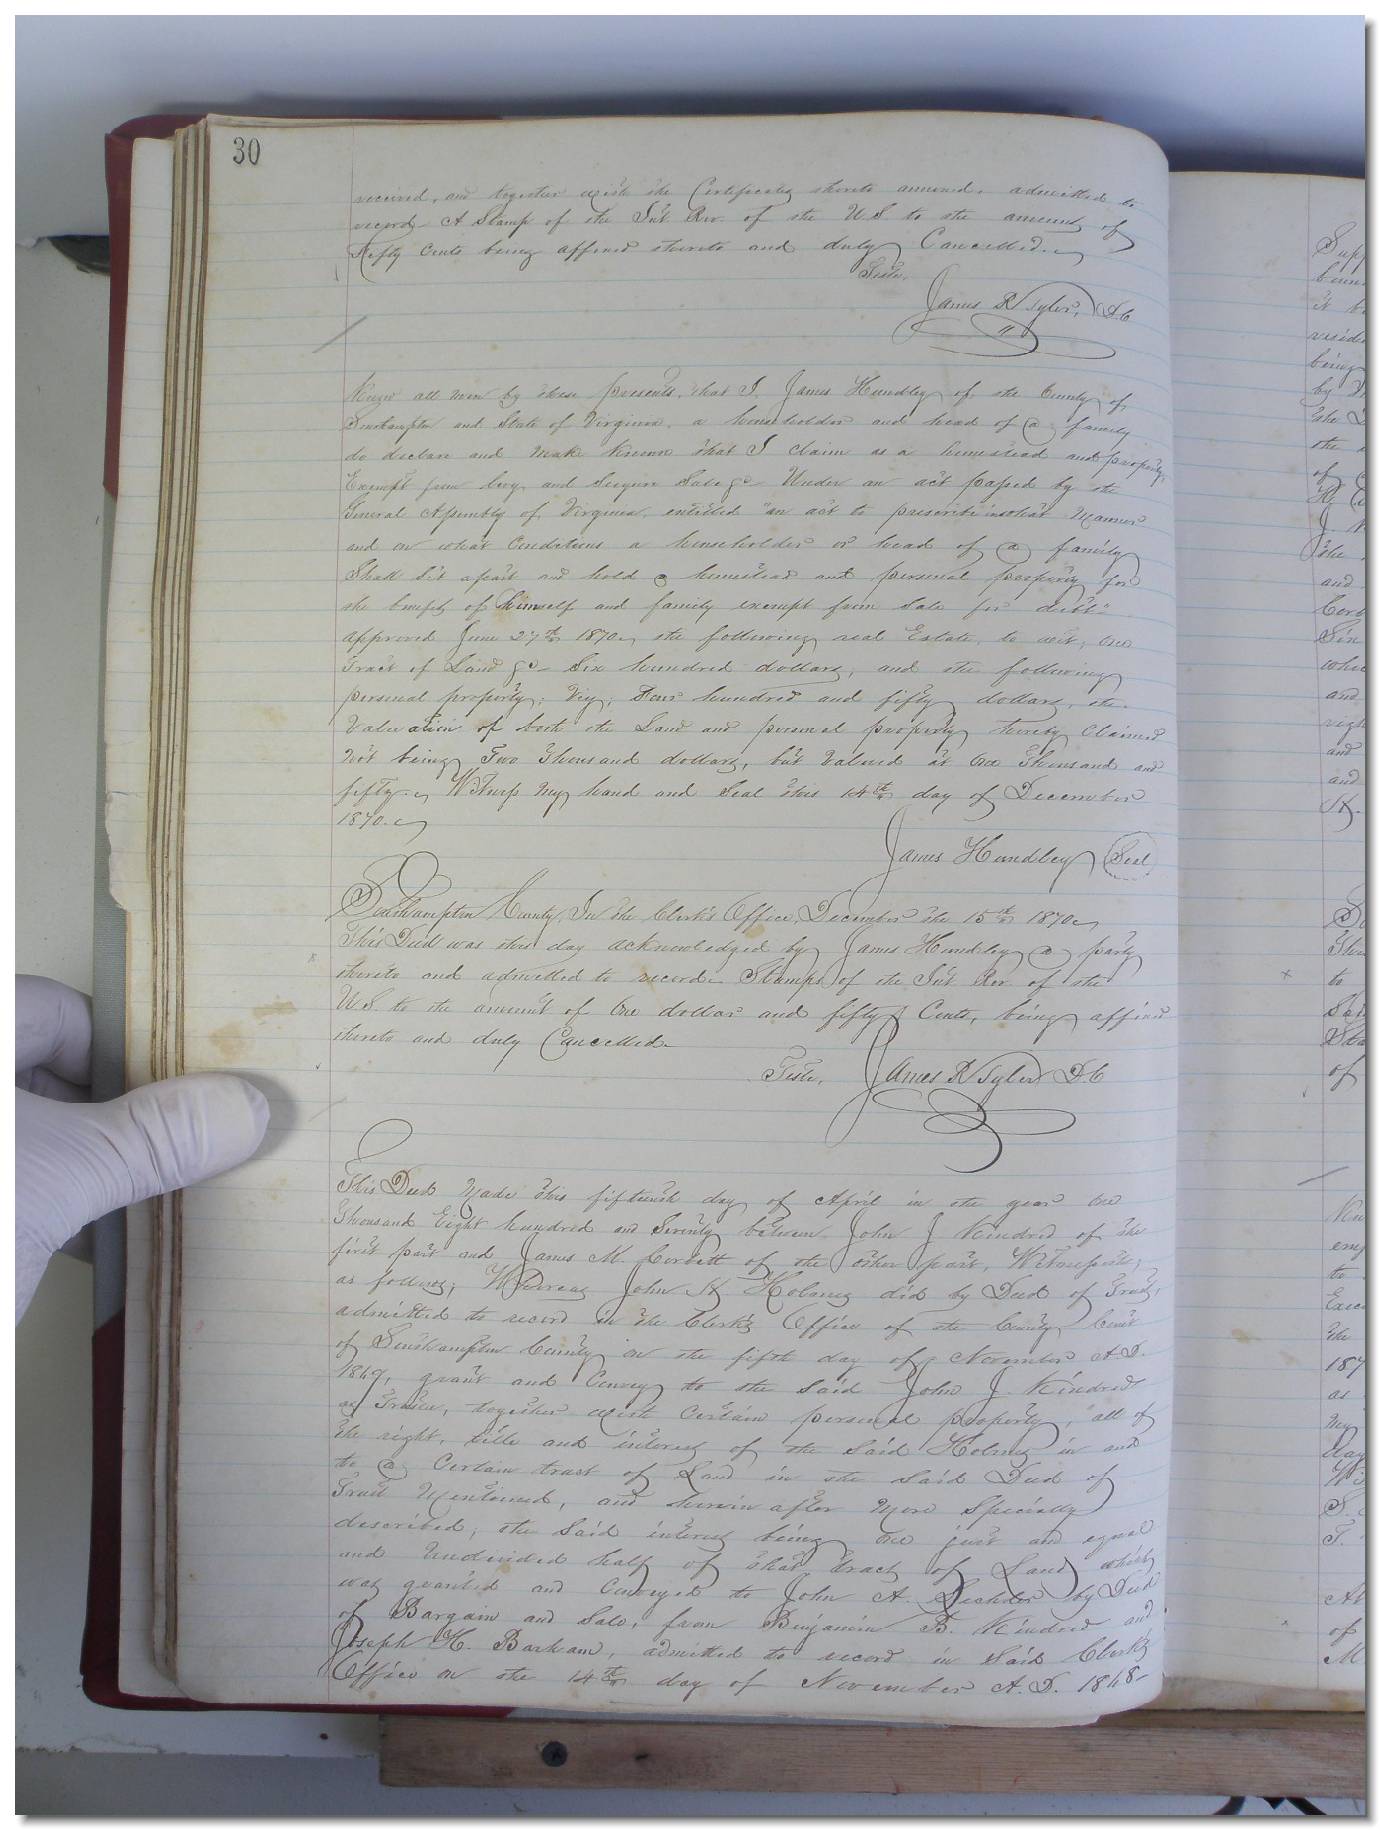 30
received, and together with the Certificates thereto annexed, admitted to
record. A Stamp of the Int Rev. of the U S to the amount of
Fifty Cents being affixed thereto and duly Cancelled.
Teste,
James R Tyler, D.C
Know all men by these presents, that I, James Hundley of the County of
Southampton and State of Virginia, a householder and head of a family
do declare and make known that I claim as a homestead and property
Exempt from levy, and Seizure Sale &c Under an act passed by the
General Assembly of Virginia, entitled "an act to prescribe in what Manner
and on what Conditions a householder or head of a family
Shall Set apart and hold a homestead and personal property for
the benefit of himself and family exempt from Sale for debt"
approved June 27th 1870, the following real Estate, to wit, One
Tract of Land &c Six hundred dollars, and the following
personal property, Viz; Four hundred and fifty dollars, the
Valuation of both the Land and personal property hereby Claimed
Not being Two Thousand dollars, but Valued at One Thousand and
fifty. Witness My hand and Seal this 14th day of December
1870.
James Hundley Seal
Southampton County, In the Clerk's Office, December the 15th 1870
This Deed was this day acknowledged by James Hundley a party
thereto and admitted to record. Stamps of the Int Rev. of the
U.S. to the amount of One dollar and fifty Cents, being affixed
thereto and duly Cancelled.
Teste, James R Tyler D.C
This Deed Made this fifteenth day of April in the year One
Thousand Eight hundred and Seventy between John J Kindred of the
first part and James M. Corbett of the other part, Witnesseth,
as follows; Whereas John H Holmes did by Deed of Trust,
admitted to record in the Clerk's Office of the County Court
of Southampton County on the fifth day of November A.D.
1869, grant and Convey to the Said John J. Kindred
as Trustee, together with Certain personal property, "all of
the right, title and interest of the Said Holmes in and
to a Certain tract of Land in the Said Deed of
Trust Mentioned, and herein after More Specially
described, the Said interest being One just and equal
and Undivided half of that tract of Land which
was granted and Conveyed to John A. by Deed
of Bargain and Sale, from Benjamin B. Kindred and
Joseph H. Barham, admitted to record in Said Clerk's
Office on the 14th day of November A.D. 1868